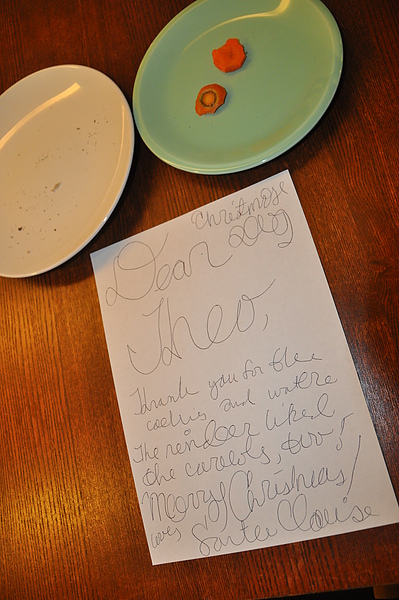 Christmas
2009
Dear
Theo,
Thank you for the
cookies and water
The reindeer liked
the carrots, too!
Merry Christmas!
Love, Santa Clause